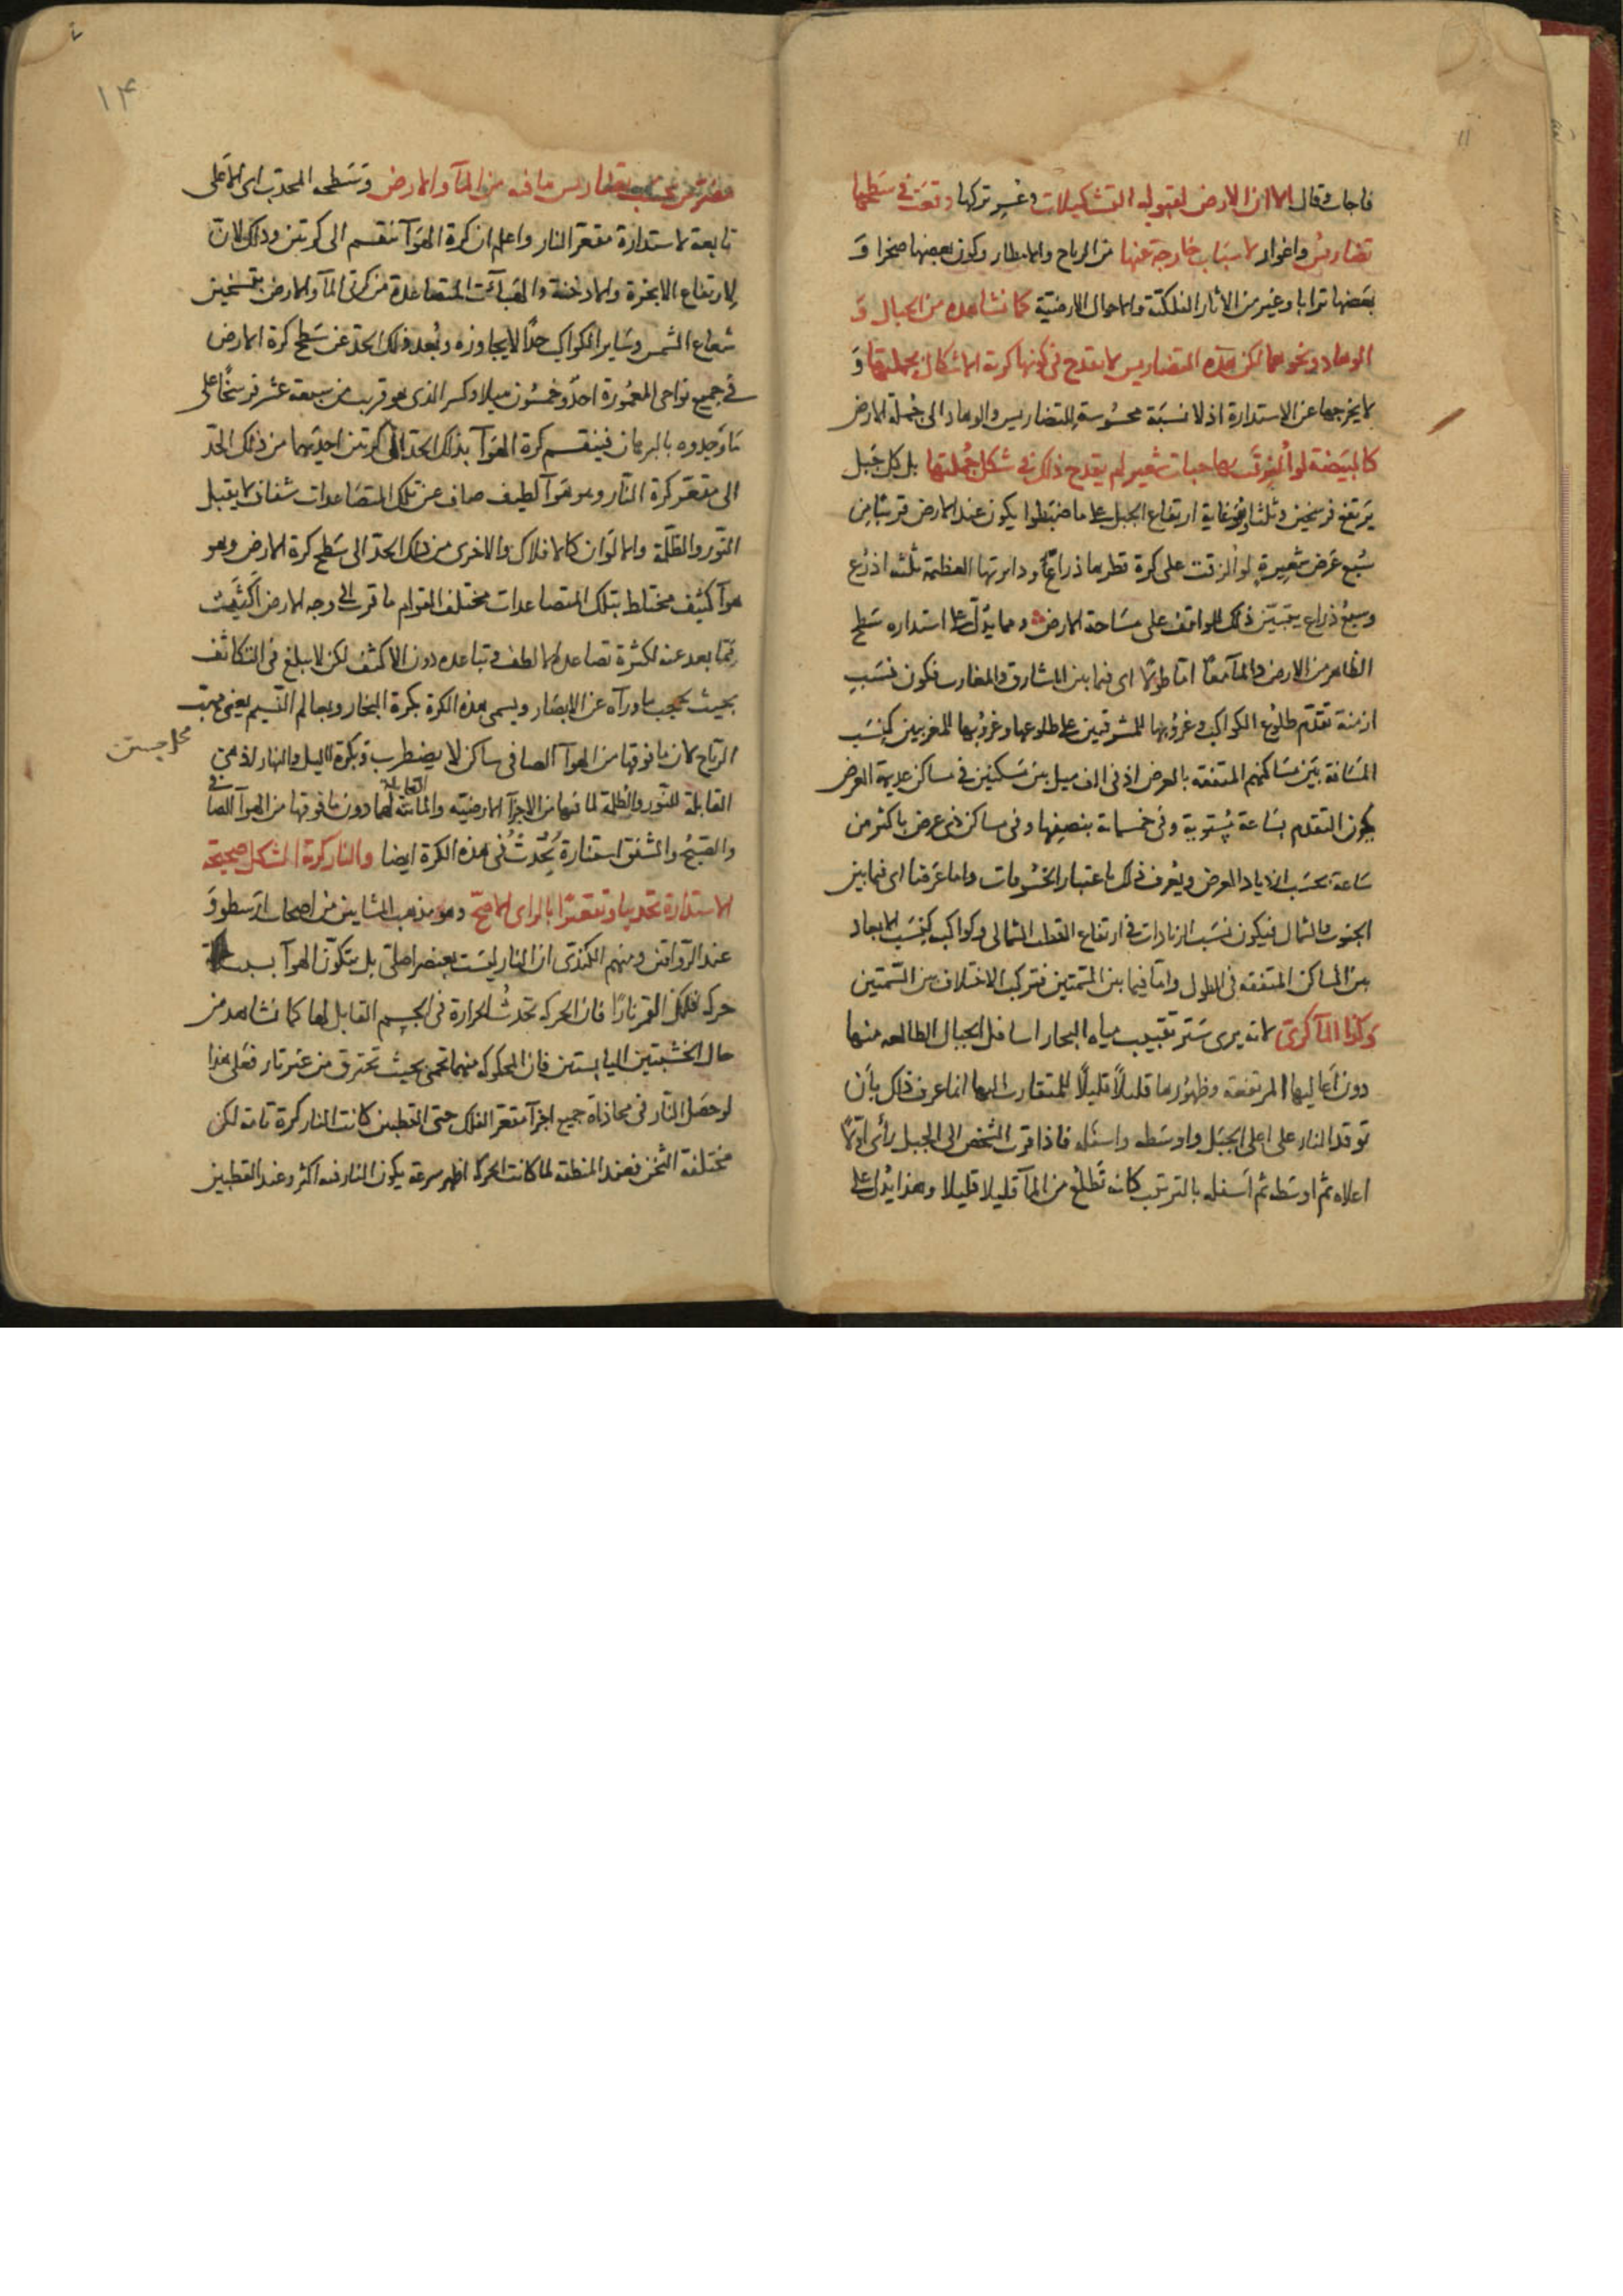 ١١
فاجاب وقال الا ان الارض لقبولها التشكيلات وغير تركها وقعت فى سطحها
تضاريس واغوار لاسباب خارجة عنها من الرياح والامطار وكون بعضها صخرا و
بعضها ترابا وغير من الاثار الفلكية والاحوال الارضية كما نشاهده من الجبال و
الوهاد ونحوهما لكن هذه التضاريس لا يقدح فى كونها كرية الاشكال بجملتها و
لا يخرجها عن الاستدارة اذ لا نسبة محسوسة للتضاريس والوهاد الى جملة الارض
كالبيضة لو الزقت بها حبات شعير لم يقدح ذلك فى شكل جملتها بل كل جبل
يرتفع فرسخين وثلثا وهو غاية ارتفاع الجبل على ما ضبطوا يكون عند الارض قريبا من
سبع عرض شعيرة لو الزقت على كرة قطرها ذراعا ودايرتها العظيمة ثلثه اذرع
وسبع ذراع يتبين ذلك للواقف على مساحة الارض ومما يدل على استداره سطح
الظاهر من الارض والمآ معا اما طولا اى فيما بين المشارق والمغارب فكون نسب
ازمنة تقدم طلوع الكواكب وغروبها للمشرقيين على طلوعها وغروبها للمغربيين كنسب
المسافة بين مساكنهم المتفقه بالعرض اذ فى الف ميل بين مسكنين فى مساكن عديمة العرض
يكون التقدم بساعة مستوية وفى خمسماية بنصفها وفى مساكن ذى عرض باكثر من
ساعة بحسب ازدياد العرض ويعرف ذلك باعتبار الخسوفات واما عرضا اى فيما بين
الجنوب والشمال فيكون نسب الزيادات فى ارتفاع القطب الشمالى وكواكبه كنسب الابعاد
بين المساكن المتفقه فى الطول واما فيما بين السمتين فتركب الاختلاف من السمتين
وكذا المآ كرى لانه يرى ستر تقبيب مياه البحار اسافل الجبال الطالعه منها
دون اعاليها المرتفعه وظهورها قليلاً قليلاً للمتقارب اليها انما عرف ذلك بان
توقد النار على اعلى الجبل واوسطه واسفله فاذا قرب الشخص الى الجبل رأى اولا
اعلاه ثم اوسطه ثم اسفله بالترتيب كانه تطلع من المآ قليلا قليلا وهذا يدل على
١٤
مضرس بحسب تضاريس ما فيه من المآ والارض وسطحه المحدب اى الاعلى
تابعة لاستدارة مقعر النار واعلم ان كرة الهوآ تنقسم الى كرتين وذلك لان
لارتفاع الابخرة والادخنة والهبآت المتصاعدة من كرتى المآ والارض بتسخين
شعاع الشمس وساير الكواكب حدًا لا يجاوزه وبعد ذلك الحد عن سطح كرة الارض
فى جميع نواحى المعمورة احد وخمسون ميلا وكسر الذى هو قريب من سبعة عشر فرسخا على
ما وجدوه بالبرهان فينقسم كرة الهوآ بذلك الحد الى كرتين احديهما من ذلك الحد
الى مقعر كرة النار وهو هوآ لطيف صاف عن تلك المتصاعدات شفاف لا يقبل
النور والظلمة والالوان كالافلاك والاخرى من ذلك الحد الى سطح كرة الارض وهو
هوآ كثيف مختلط بتلك المتصاعدات مختلف القوام ما قرب الى وجه الارض اكثف
مما بعد عنه لكثرة تصاعد الالطف وتباعده دون الاكثف لكن لا يبلغ فى التكاثف
بحيث يحجب ماورآه عن الابصار ويسمى هذه الكرة بكرة البخار وبعالم النسيم يعنى مهب
محل جستن
الرياح لان ما فوقها من الهوآ الصافى ساكن لا يضطرب وبكرة الليل والنهار اذ هى
القابلة للنور والظلمة لما فيها من الاجزآ الارضية والمائية لهما دون ما فوقها من الهوآ الصافى
القابلة
والصبح والشفق استنارة يحدث فى هذه الكرة ايضا والنار كرة الشكل صحيحة
الاستدارة تحديبا وتقعيرا بالراى الاصح وهو مذهب المشايين من اصحاب ارسطو و
عند الرواقين ومنهم الكندى ان النار ليست بعنصر اصلى بل يتكون الهوآ
حركة فلك القمر نارًا فان الحركه تحدث الحرارة فى الجسم القابل لها كما نشاهد من
حال الخشبتين اليابستين فان المحكوكه منهما تحمى بحيث تحترق من غير نار فعلى هذا
لو حصل النار فى محاذاة جميع اجزآ مقعر الفلك حتى القطبين كانت النار كرة تامة لكن
مختلفة الثخن فعند المنطقه لما كانت الحركة اظهر سرعة يكون النار فيه اكثر وعند القطبين